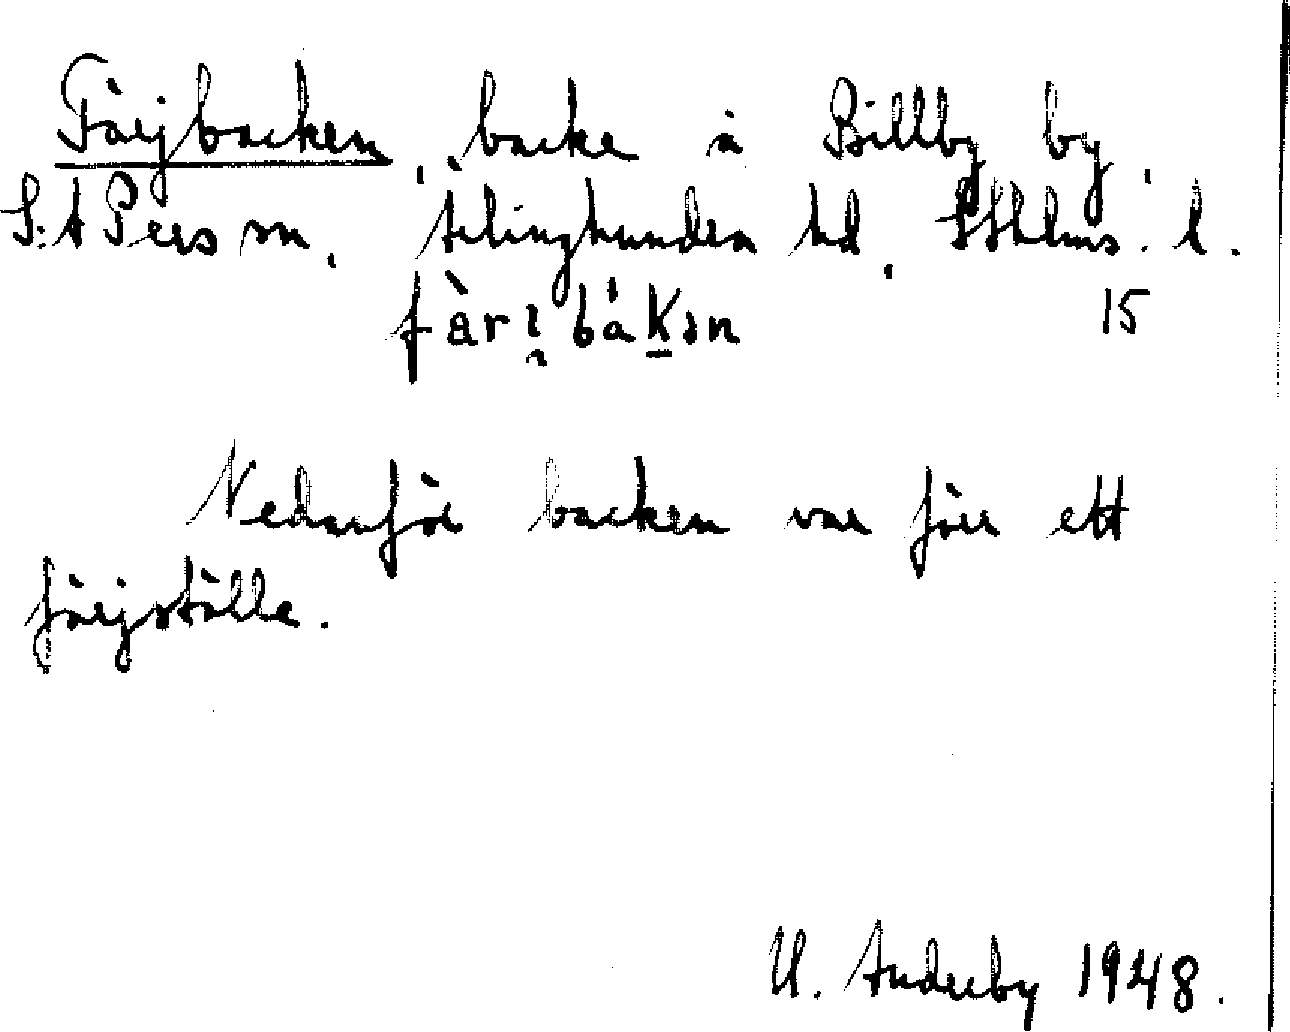 Färjbacken, backe å Billby by,
S:t Pers sn, Ärlinghundra hd, Sthlms l.
fàrjbákən 15
Nedanför backen var förr ett
färjställe.
U. Anderby 1948.